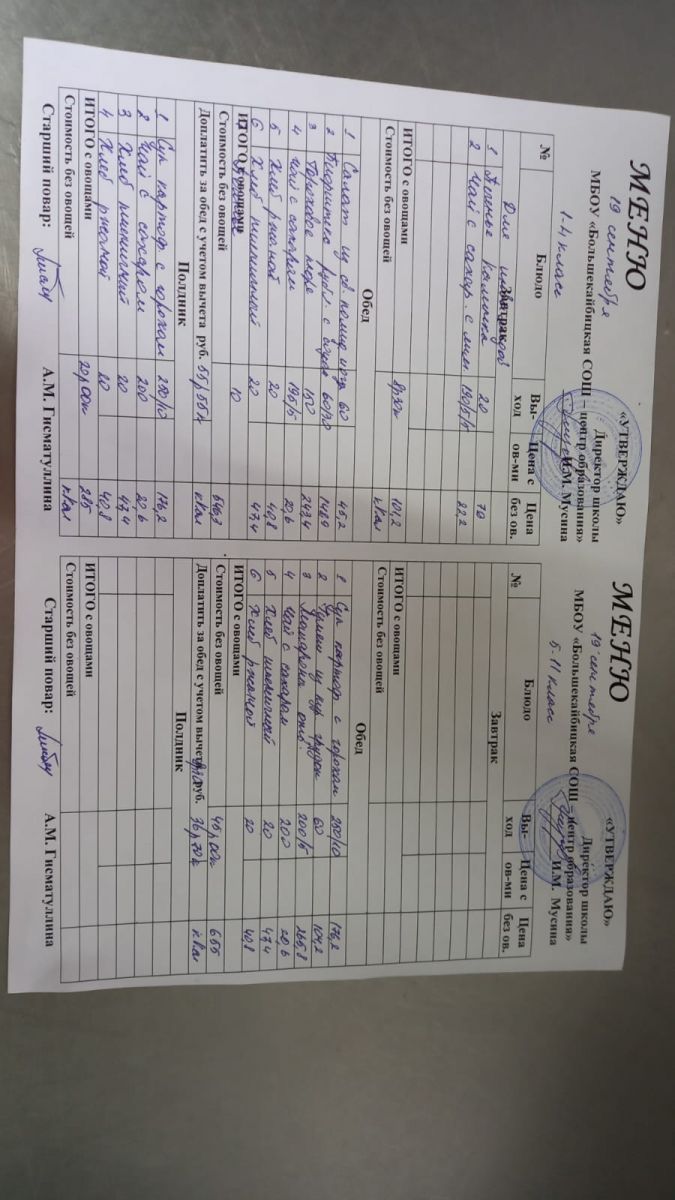 МЕНЮ
19 сентября
«УТВЕРЖДАЮ»
Директор школы
МБОУ «Большекайбицкая СОШ – центр образования»
И.М. Мусина
1-4 класс
№ Блюдо Вы-ход Цена с ов-ми Цена без ов.
Завтрак
Для
1 Печенье 20 79
2 Чай с сахар. с лим 190/5/5 22,2
ИТОГО с овощами 101,2
Стоимость без овощей ккал
Обед
1 Салат из св помид 60 45,2
2 60/30 148,9
3 Гороховое пюре 150 243,4
4 Чай с сахаром 195/5 20,6
5 Хлеб ржаной 20 40,8
6 Хлеб пшеничный 20 47,4
ИТОГО с овощами 10
Стоимость без овощей
Доплатить за обед с учетом вычета руб. 55р55к ккал
Полдник
1 Суп картоф с горохом 250/10 176,2
2 Чай с сахаром 200 20,6
3 Хлеб пшеничный 20 47,4
4 Хлеб ржаной 20 40,8
ИТОГО с овощами 20р00к 285
Стоимость без овощей ккал
Старший повар: А.М. Гисматуллина
МЕНЮ
19 сентября
«УТВЕРЖДАЮ»
Директор школы
МБОУ «Большекайбицкая СОШ – центр образования»
И.М. Мусина
5-11 класс
№ Блюдо Вы-ход Цена с ов-ми Цена без ов.
Завтрак
ИТОГО с овощами
Стоимость без овощей
Обед
1 Суп картоф с горохом 250/10 176,2
2 Гуляш из кур грудки 60 104,2
3 Макароны отв. 200/5 265,8
4 Чай с сахаром 200 20,6
5 Хлеб пшеничный 20 47,4
6 Хлеб ржаной 20 40,8
ИТОГО с овощами
Стоимость без овощей 45р00к 655
Доплатить за обед с учетом вычета руб. 36р70к ккал
Полдник
ИТОГО с овощами
Стоимость без овощей
Старший повар: А.М. Гисматуллина